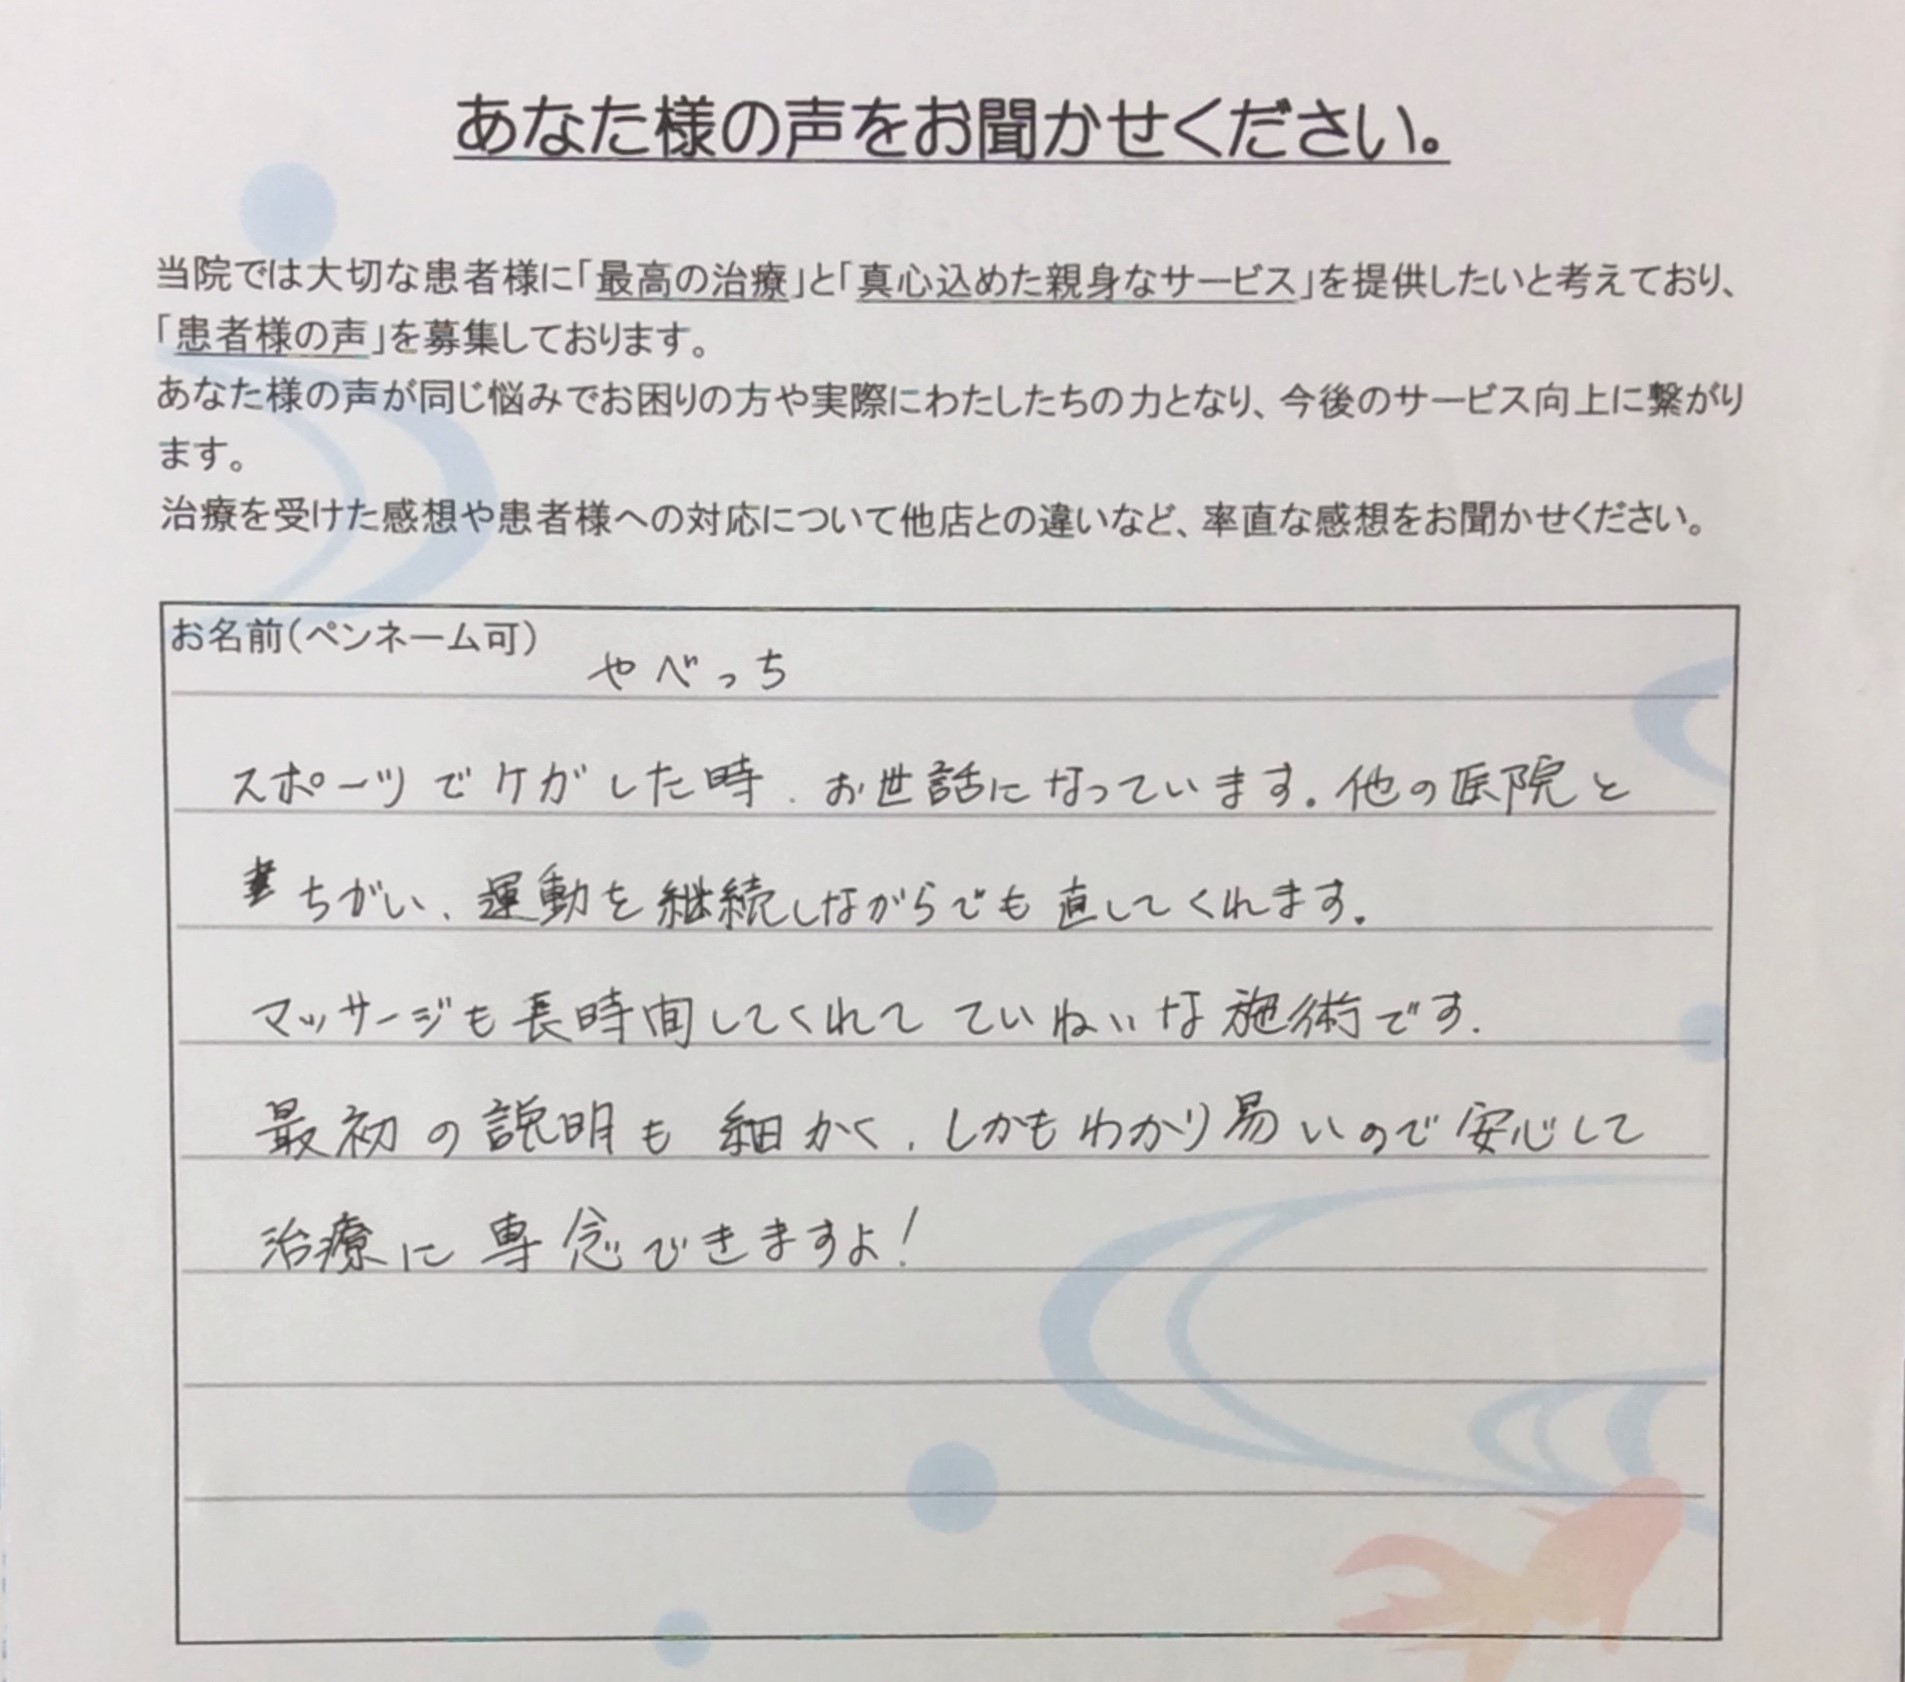 あなた様の声をお聞かせください。
当院では大切な患者様に「最高の治療」と「真心込めた親身なサービス」を提供したいと考えており、
「患者様の声」を募集しております。
あなた様の声が同じ悩みでお困りの方や実際にわたしたちの力となり、今後のサービス向上に繋がり
ます。
治療を受けた感想や患者様への対応について他店との違いなど、率直な感想をお聞かせください。
お名前(ペンネーム可)
やべっち
スポーツでケガした時、お世話になっています。他の医院と
ちがい、運動を継続しながらでも直してくれます。
マッサージも長時間してくれて ていねいな施術です.
最初の説明も細かく、しかもわかり易いので安心して
治療に専念できますよ!